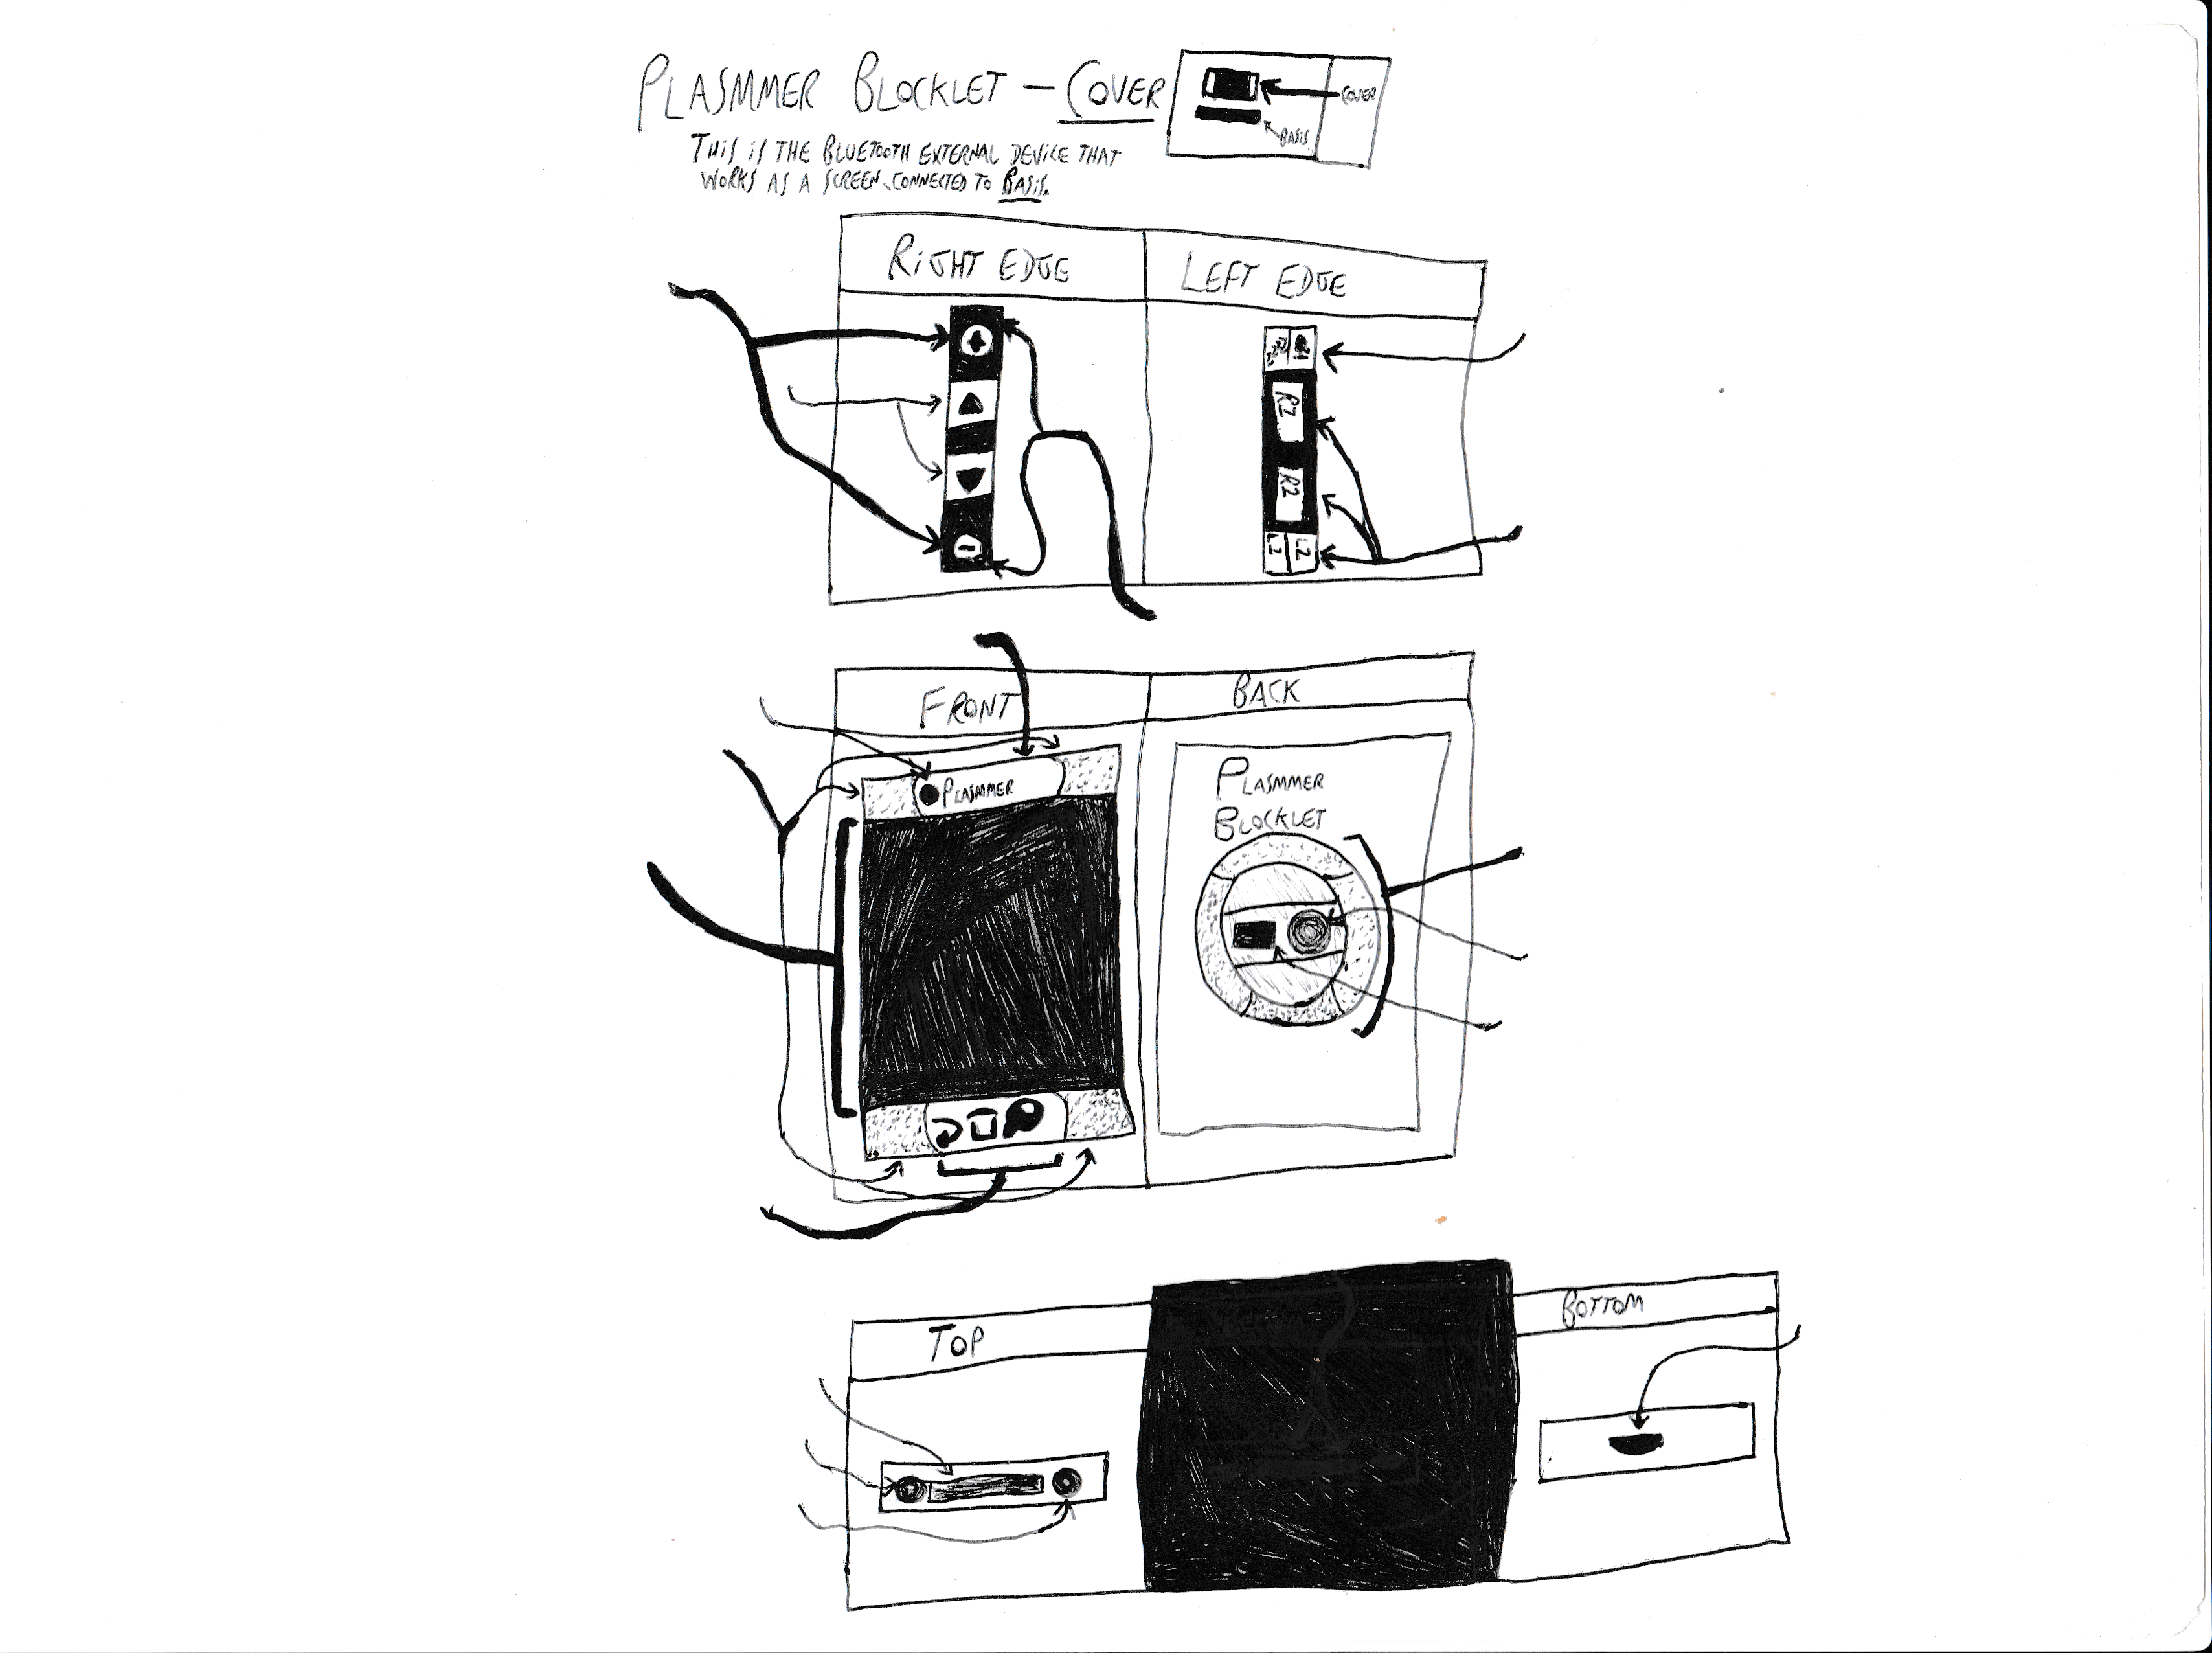 PLASMMER BLOCKLET — COVER
COVER
BASIS
THIS IS THE BLUETOOTH EXTERNAL DEVICE THAT
WORKS AS A SCREEN, CONNECTED TO BASIS.
RIGHT EDGE
LEFT EDGE
+
-
R1
R2
L1
L2
FRONT
BACK
PLASMMER
PLASMMER
BLOCKLET
TOP
BOTTOM